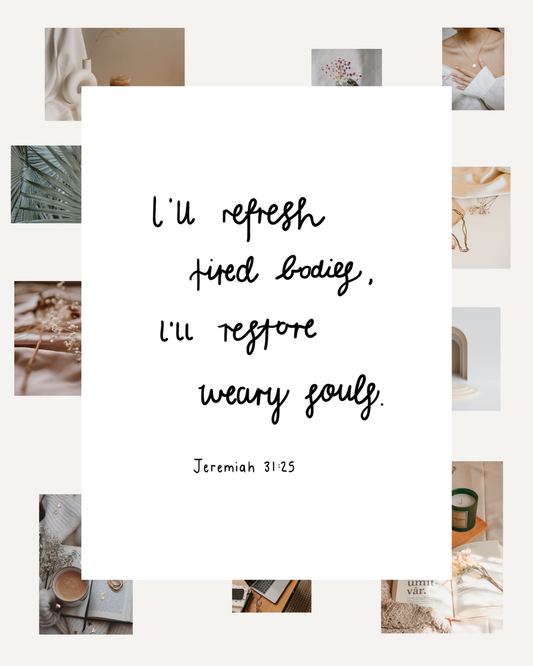 I'll refresh
tired bodies,
I'll restore
weary souls.
Jeremiah 31:25
umit-
vár.